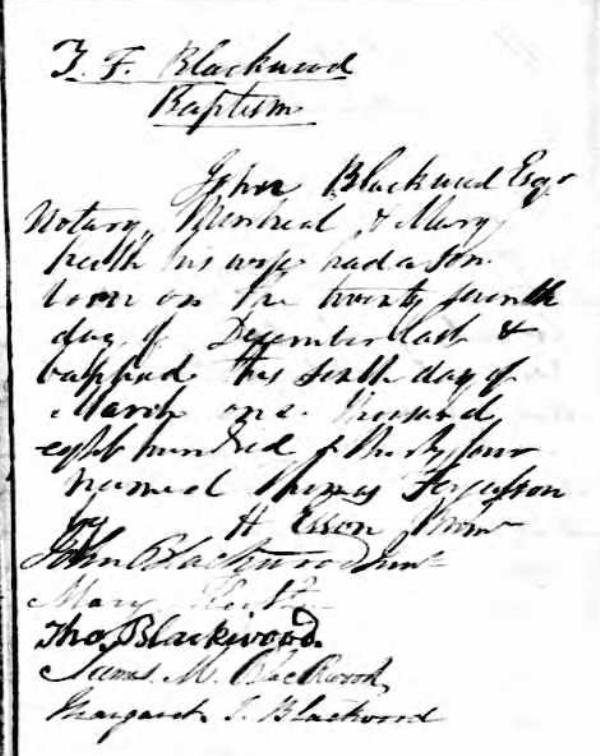 T. F. Blackwood
Baptism
John Blackwood Esqr
Notary, Montreal & Mary
his wife had a son
born on the twenty seventh
day of December last &
baptised this sixth day of
March one thousand
eight hundred & thirty four
named Thomas Fergusson
by H Esson
John Blackwood
Mary
Tho. Blackwood.
James M. Blackwood,
Margaret I. Blackwood